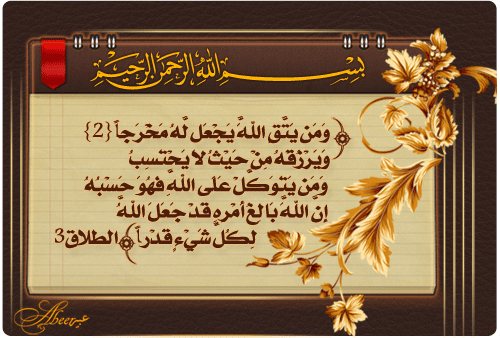 بِسْمِ اللهِ الرَّحْمَنِ الرَّحِيمِ
وَمَن يَتَّقِ اللَّهَ يَجْعَل لَّهُ مَخْرَجاً {2}
وَيَرْزُقْهُ مِنْ حَيْثُ لَا يَحْتَسِبُ
وَمَن يَتَوَكَّلْ عَلَى اللَّهِ فَهُوَ حَسْبُهُ
إِنَّ اللَّهَ بَالِغُ أَمْرِهِ قَدْ جَعَلَ اللَّهُ
لِكُلِّ شَيْءٍ قَدْراً الطلاق3
Abeer عبير